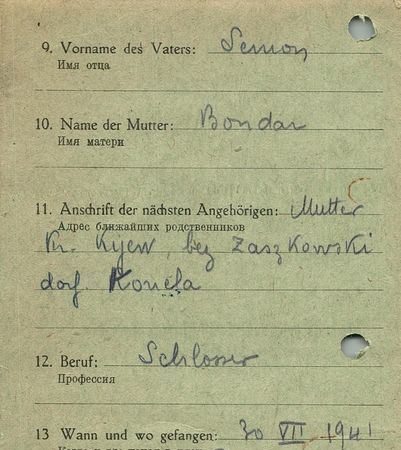 9. Vorname des Vaters: Semon
Имя отца
10. Name der Mutter: Bondar
Имя матери
11. Anschrift der nächsten Angehörigen: Mutter
Адрес ближайших родственников
Kr. Kyew, bez Zaszkowski
dorf. Konela
12. Beruf: Schlosser
Профессия
13 Wann und wo gefangen: 30 VII 1941